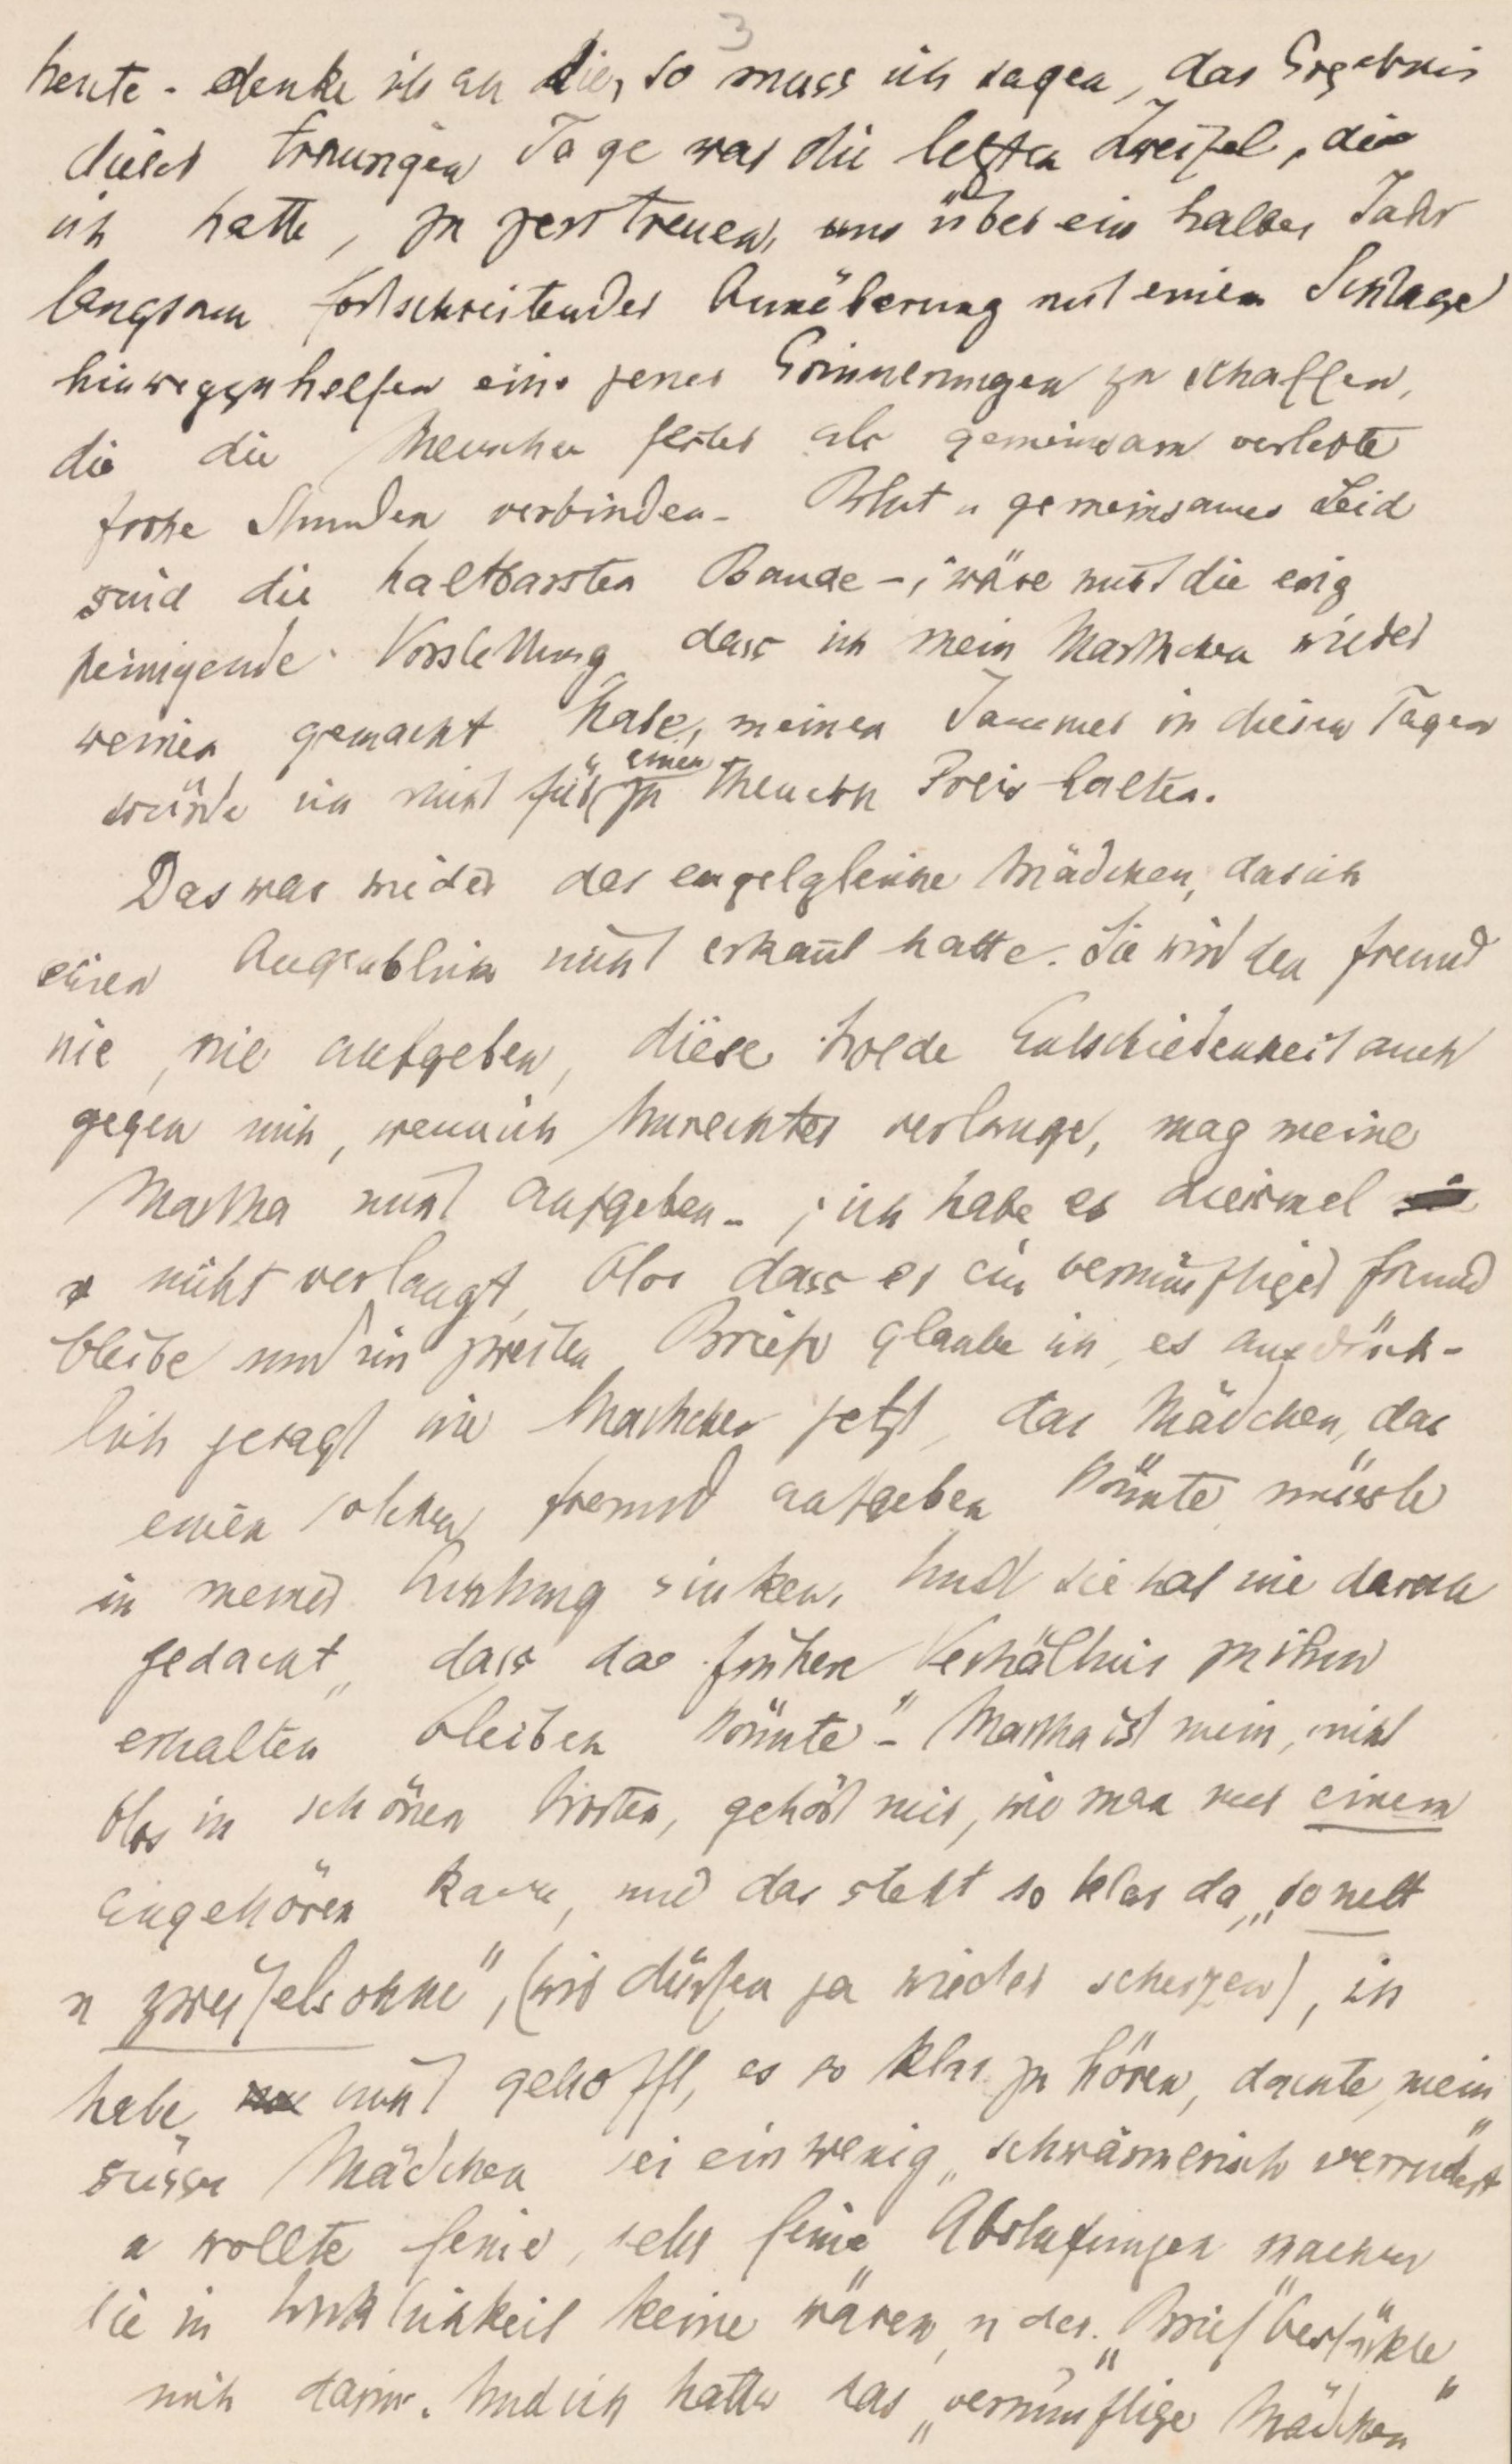 3
heute - denke ich an Dir, so muss ich sagen, das Ergebnis
dieser traurigen Tage war die letzten Zweifel, die
ich hatte, zu zerstreuen, uns über ein halbes Jahr
langsam fortschreitender Annäherung mit einem Schlage
hinwegzuhelfen eine jener Erinnerungen zu schaffen,
die die Menschen fester als gemeinsam verlebte
frohe Stunden verbinden - Blut u gemeinsames Leid
sind die haltbarsten Bande -; wäre nicht die ewig
peinigende Vorstellung dass ich mein Marthchen wieder
weinen gemacht habe, meinen Jammer in diesen Tagen
würde ich nicht für einen zu theuern Preis halten.
Das war wieder das engelgleiche Mädchen, das ich
einen Augenblick nicht erkannt hatte. Sie wird den Freund
nie, nie aufgeben, diese holde Entschiedenheit auch
gegen mich, wenn ich Unrechtes verlange, mag meine
Martha nicht aufgeben -; ich habe es diesmal
nicht verlangt, blos dass er ein vernünftiger Freund
bleibe und im zweiten Briefe glaube ich, es ausdrück-
lich gesagt wie Marthchen jetzt, das Mädchen, das
einen solchen Freund aufgeben könnte müsste
in meiner Achtung sinken. Und sie hat nie daran
gedacht, „dass das frühere Verhältnis zu ihm
erhalten bleiben könnte" - Martha ist mein, nicht
blos in schönen Worten, gehört mir, wie man nur einem
angehören kann, und das steht so klar da, „so nett
u zweifelsohne", (wir dürfen ja wieder scherzen), ich
habe nicht gehofft, es so klar zu hören, dachte, mein
süsses Mädchen sei ein wenig „schwärmerisch verrückt"
u wollte feine, sehr feine Abstufungen machen
die in Wirklichkeit keine wären, u der „Brief" bestärkte
mich darin. Und ich hatte das „vernünftige Mädchen"